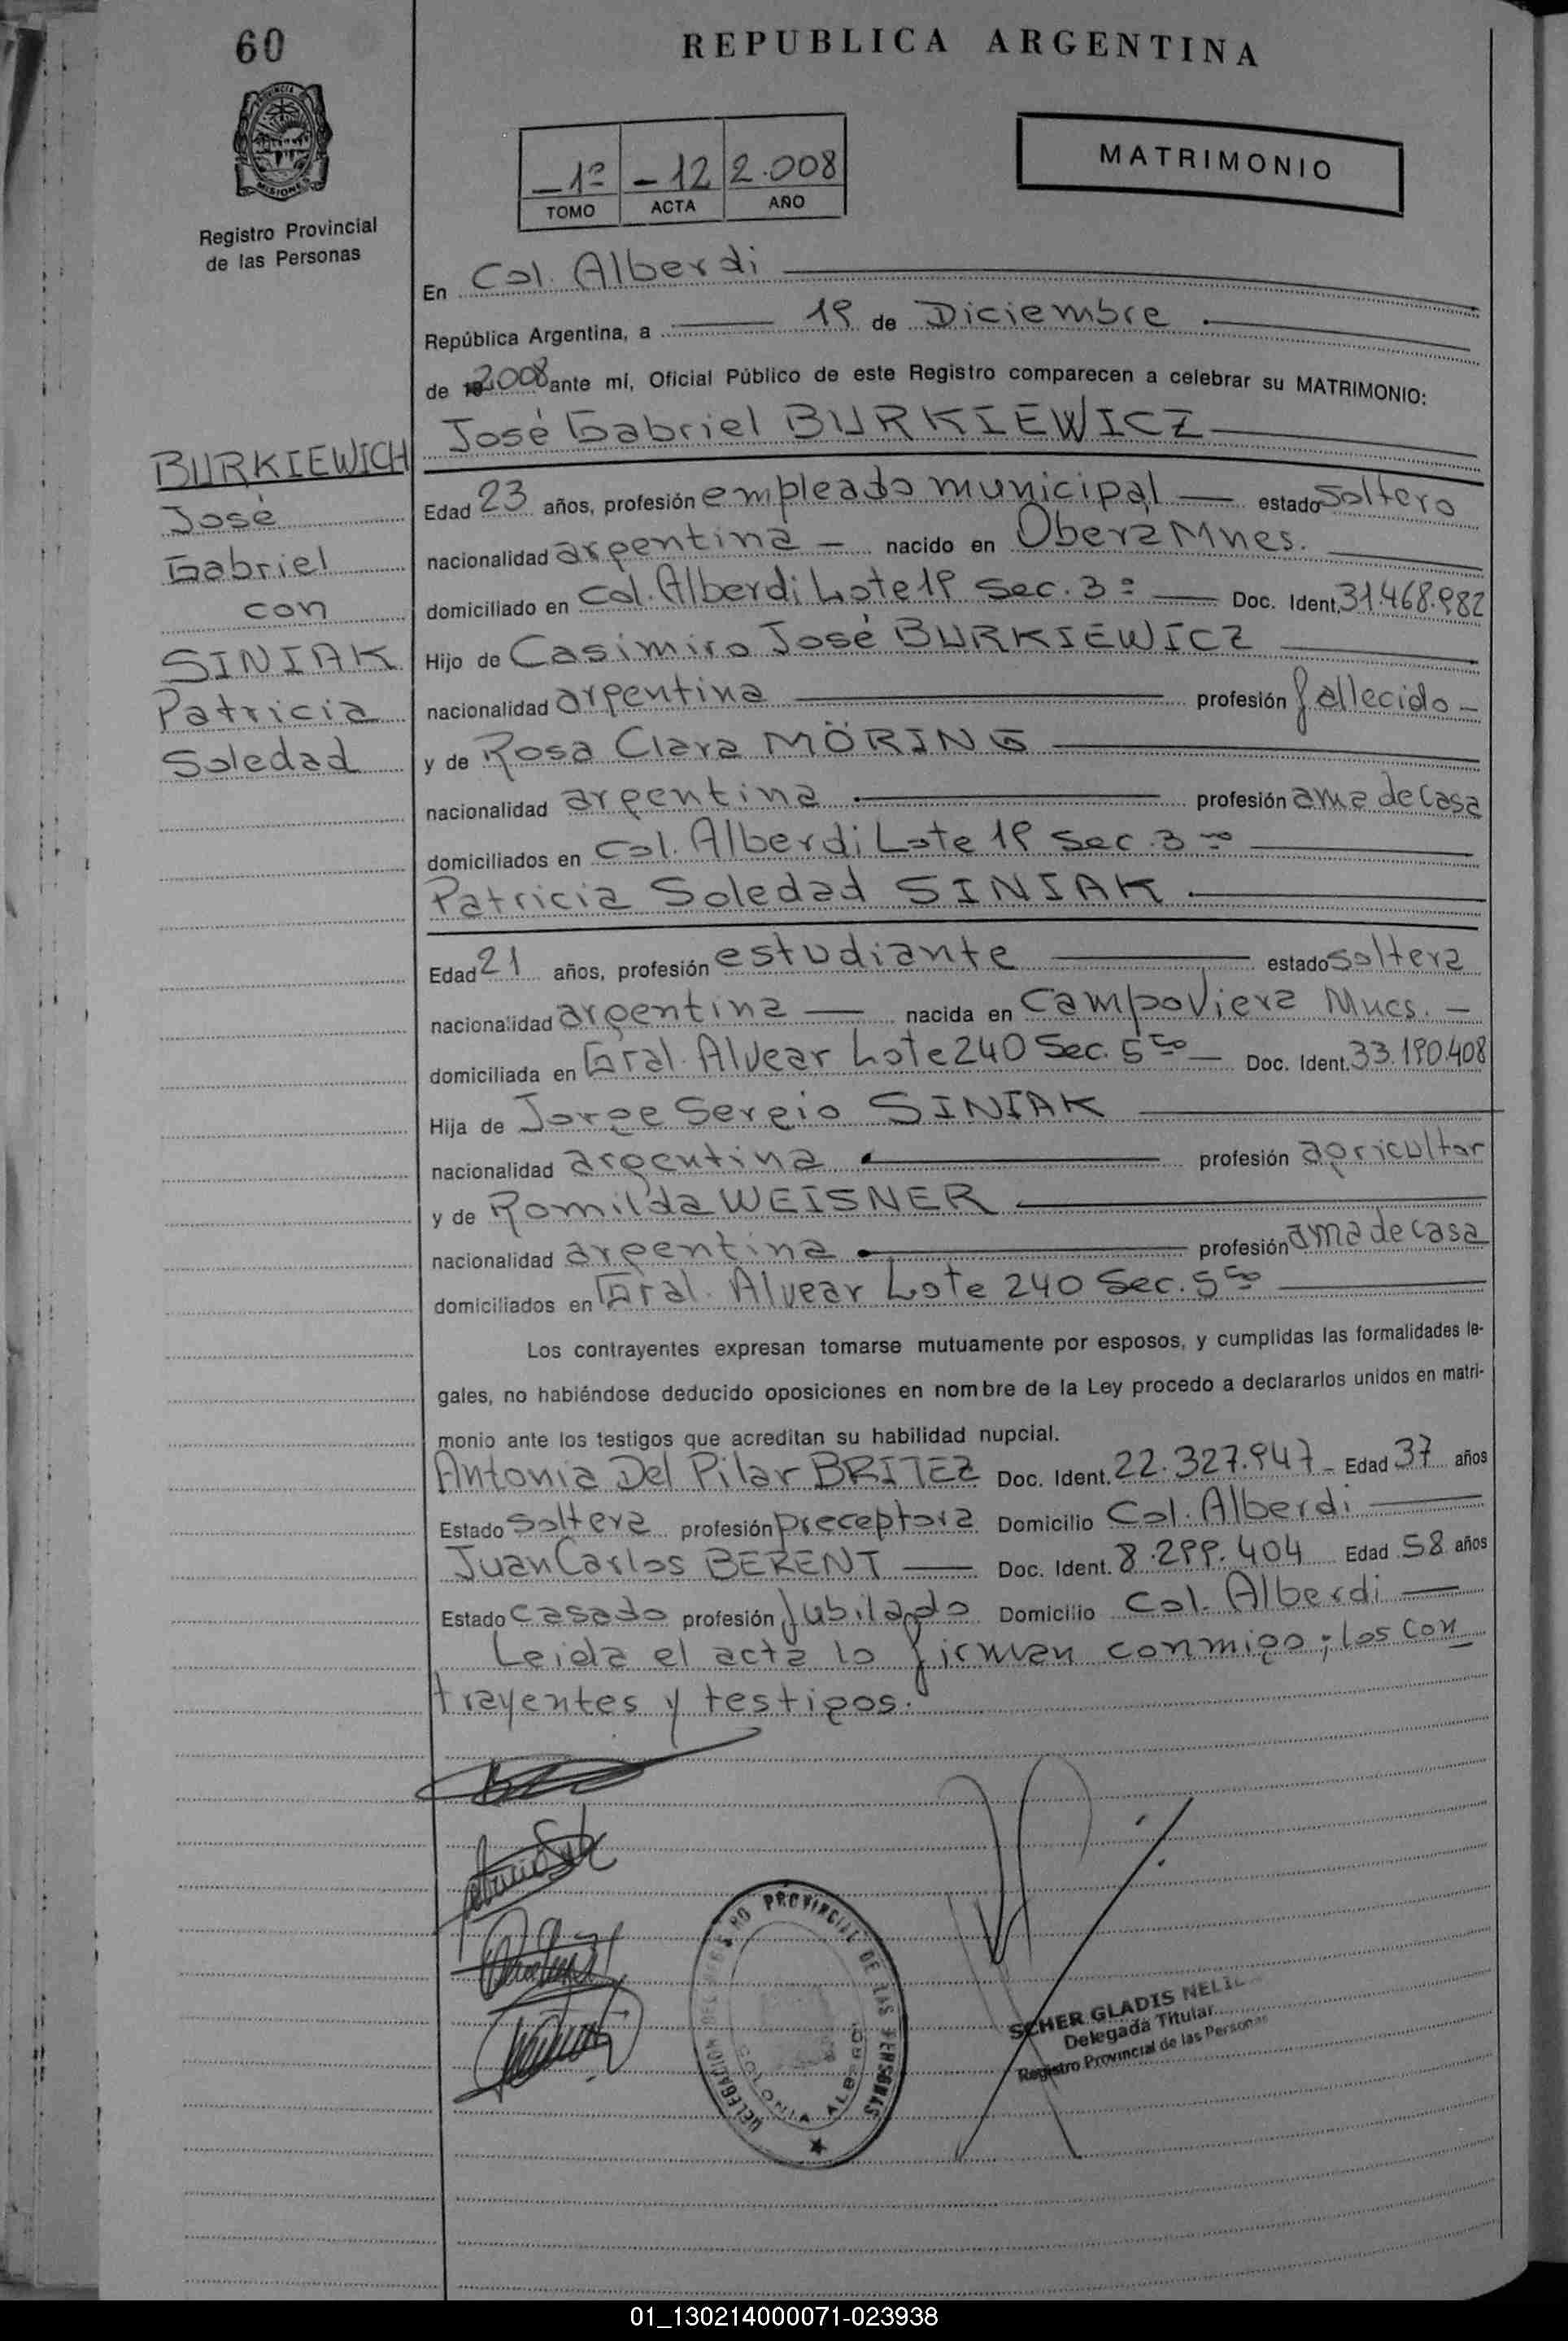 60
REPUBLICA ARGENTINA
MISIONES
Registro Provincial
de las Personas
-1º -12 2.008
TOMO ACTA AÑO
MATRIMONIO
En Col. Alberdi
República Argentina, a 19 de Diciembre
de 2008 ante mí, Oficial Público de este Registro comparecen a celebrar su MATRIMONIO:
José Gabriel BURKIEWICZ
BURKIEWICH
José
Gabriel
con
SINIAK
Patricia
Soledad
Edad 23 años, profesión empleado municipal estado soltero
nacionalidad argentina nacido en Obera Mnes.
domiciliado en Col. Alberdi Lote 19 Sec. 3º Doc. Ident. 31.468.982
Hijo de Casimiro José BURKIEWICZ
nacionalidad argentina profesión fallecido
y de Rosa Clara MÖRING
nacionalidad argentina profesión ama de casa
domiciliados en Col. Alberdi Lote 19 Sec. 3
Patricia Soledad SINIAK
Edad 21 años, profesión estudiante estado soltera
nacionalidad argentina nacida en Campo Viera Mnes.
domiciliada en Gral. Alvear Lote 240 Sec. 5 Doc. Ident. 33.190.408
Hija de Jorge Sergio SINIAK
nacionalidad argentina profesión agricultor
y de Romilda WEISNER
nacionalidad argentina profesión ama de casa
domiciliados en Gral. Alvear Lote 240 Sec. 5
Los contrayentes expresan tomarse mutuamente por esposos, y cumplidas las formalidades le-
gales, no habiéndose deducido oposiciones en nombre de la Ley procedo a declararlos unidos en matri-
monio ante los testigos que acreditan su habilidad nupcial.
Antonia Del Pilar BRITEZ Doc. Ident. 22.327.947 Edad 37 años
Estado soltera profesión preceptora Domicilio Col. Alberdi
Juan Carlos BERENT Doc. Ident. 8.299.404 Edad 58 años
Estado casado profesión jubilado Domicilio Col. Alberdi
Leida el acta lo firman conmigo; los con
trayentes y testigos.
DELEGACION DEL PROVINCIAL DE LAS PERSONAS
COLONIA ALBERDI
SCHER GLADIS
Delegada Titular
Registro Provincial de las Personas
01_130214000071-023938